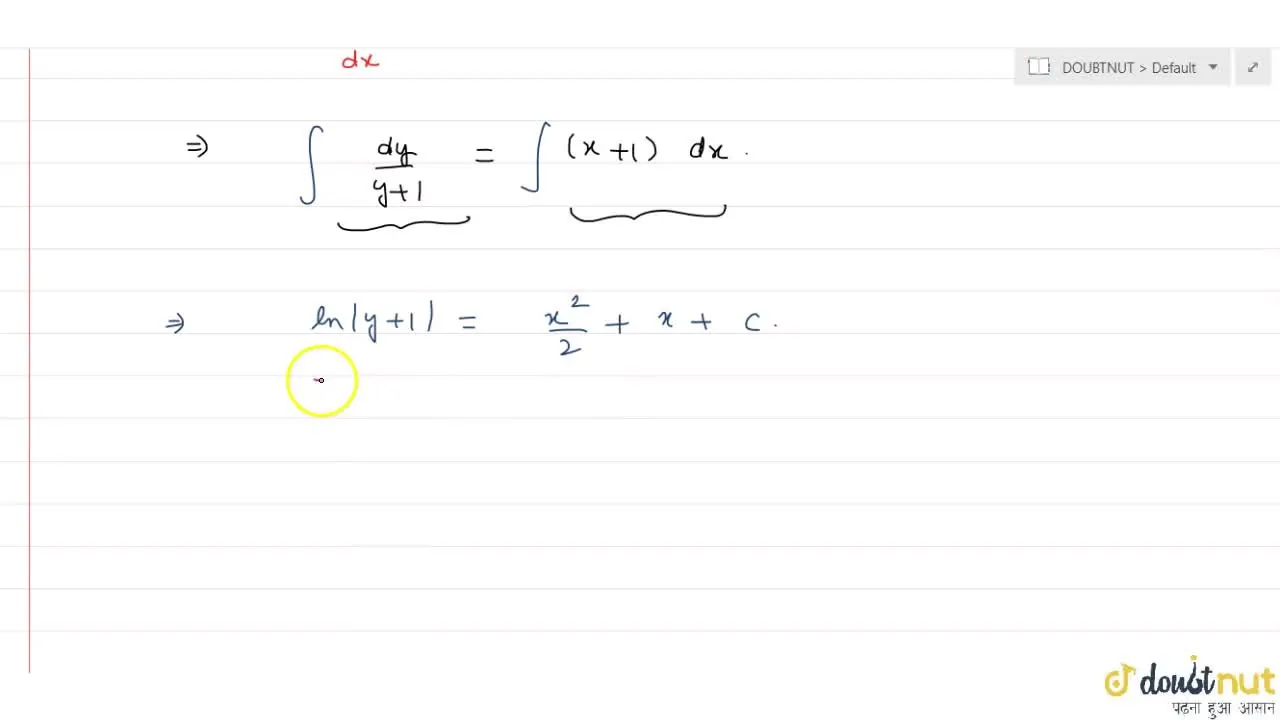 dx
DOUBTNUT > Default
⇒ ∫ dy/(y+1) = ∫ (x+1) dx.
⇒ ln|y+1| = x²/2 + x + c.
doubtnut
पढ़ना हुआ आसान